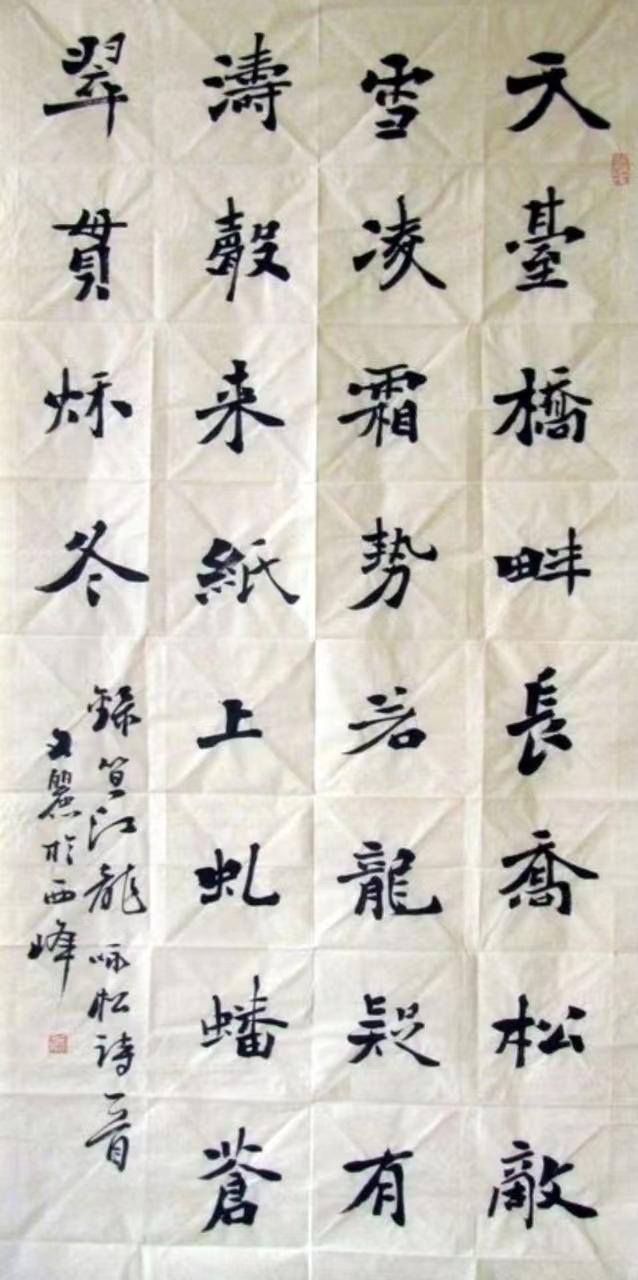 天臺橋畔長喬松敵
雪凌霜势若龍疑有
濤聲来紙上虬蟠蒼
翠貫秌冬
錄笪江龍咏松詩一首
麗於西峰